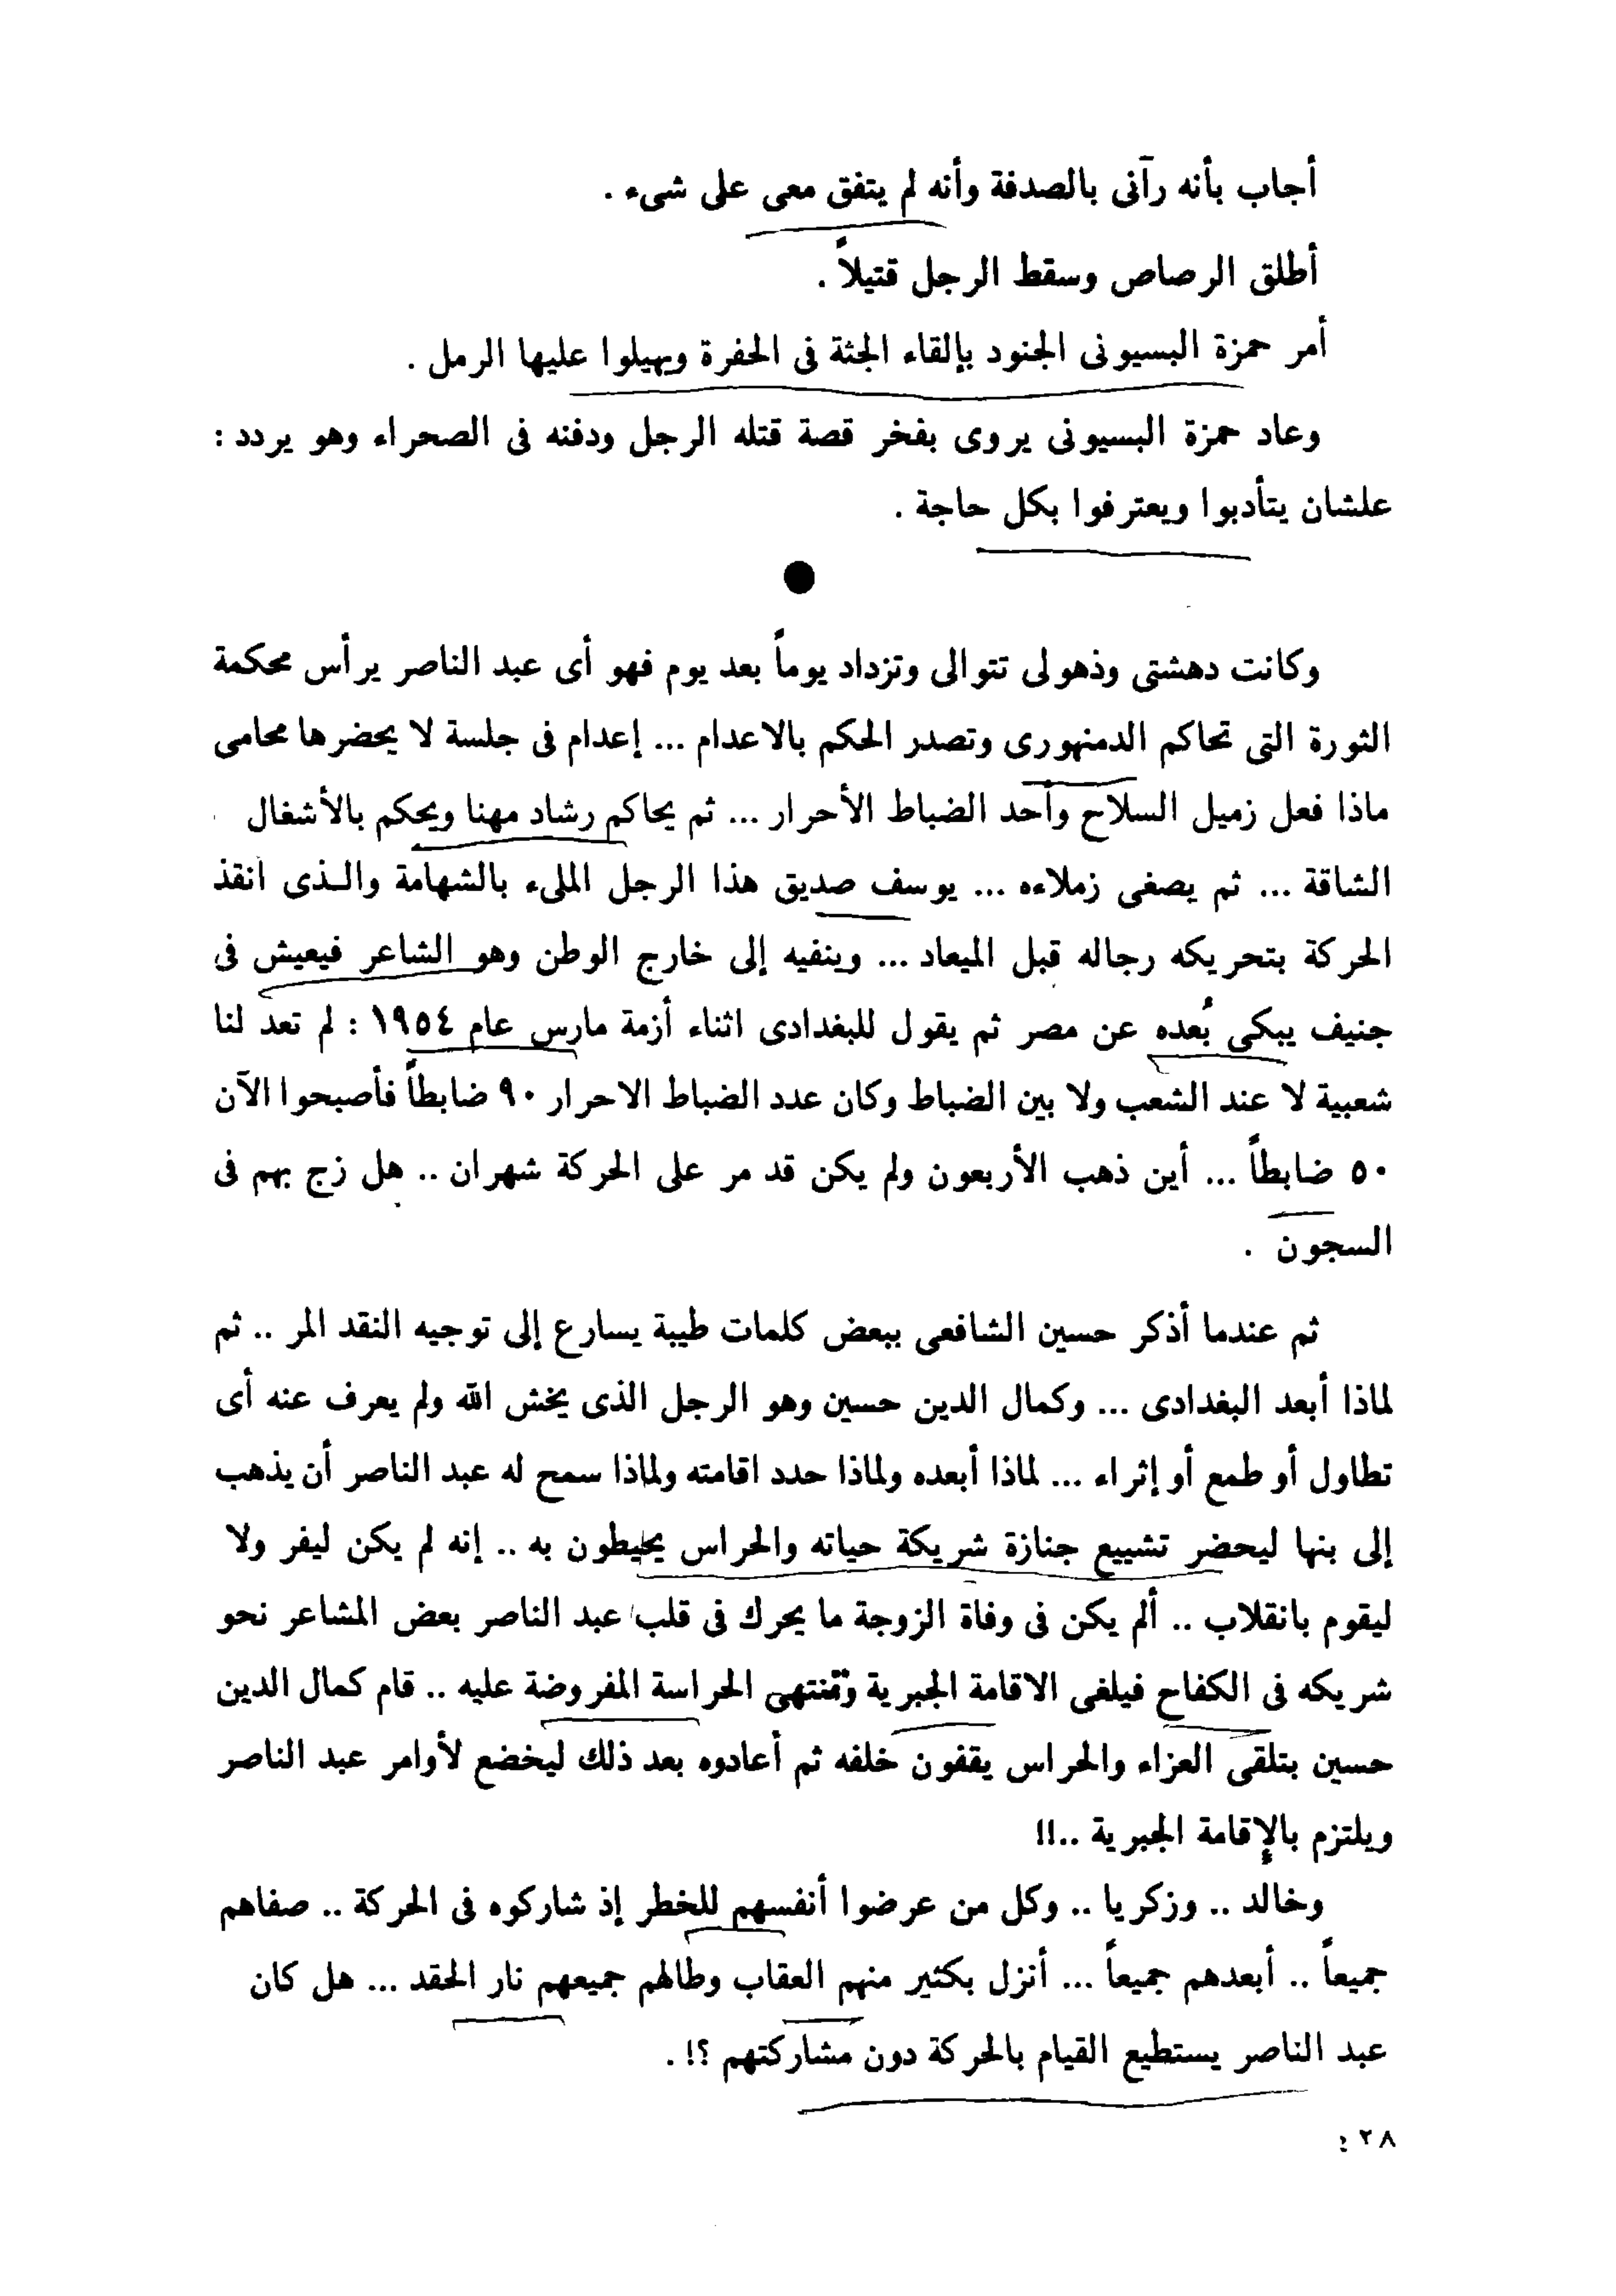 أجاب بأنه رآنى بالصدفة وأنه لم يتفق معى على شىء .
أطلق الرصاص وسقط الرجل قتيلاً .
أمر حمزة البسيونى الجنود بإلقاء الجثة فى الحفرة ويهيلوا عليها الرمل .
وعاد حمزة البسيونى يروى بفخر قصة قتله الرجل ودفنه فى الصحراء وهو يردد :
علشان يتأدبوا ويعترفوا بكل حاجة .
وكانت دهشتى وذهولى تتوالى وتزداد يوماً بعد يوم فهو أى عبد الناصر يرأس محكمة
الثورة التى تحاكم الدمنهورى وتصدر الحكم بالاعدام ... إعدام فى جلسة لا يحضرها محامى
ماذا فعل زميل السلاح وأحد الضباط الأحرار ... ثم يحاكم رشاد مهنا ويحكم بالأشغال
الشاقة ... ثم يصفى زملاءه ... يوسف صديق هذا الرجل الملىء بالشهامة والذى انقذ
الحركة بتحريكه رجاله قبل الميعاد ... وينفيه إلى خارج الوطن وهو الشاعر فيعيش فى
جنيف يبكى بُعده عن مصر ثم يقول للبغدادى اثناء أزمة مارس عام ١٩٥٤ : لم تعد لنا
شعبية لا عند الشعب ولا بين الضباط وكان عدد الضباط الاحرار ٩٠ ضابطاً فأصبحوا الآن
٥٠ ضابطاً ... أين ذهب الأربعون ولم يكن قد مر على الحركة شهران .. هل زج بهم فى
السجون .
ثم عندما أذكر حسين الشافعى ببعض كلمات طيبة يسارع إلى توجيه النقد المر .. ثم
لماذا أبعد البغدادى ... وكمال الدين حسين وهو الرجل الذى يخش الله ولم يعرف عنه أى
تطاول أو طمع أو إثراء ... لماذا أبعده ولماذا حدد اقامته ولماذا سمح له عبد الناصر أن يذهب
إلى بنها ليحضر تشييع جنازة شريكة حياته والحراس يحيطون به .. إنه لم يكن ليفر ولا
ليقوم بانقلاب .. ألم يكن فى وفاة الزوجة ما يحرك فى قلب عبد الناصر بعض المشاعر نحو
شريكه فى الكفاح فيلغى الاقامة الجبرية وتنتهى الحراسة المفروضة عليه .. قام كمال الدين
حسين بتلقى العزاء والحراس يقفون خلفه ثم أعادوه بعد ذلك ليخضع لأوامر عبد الناصر
ويلتزم بالإقامة الجبرية ..!!
وخالد .. وزكريا .. وكل من عرضوا أنفسهم للخطر إذ شاركوه فى الحركة .. صفاهم
جميعاً .. أبعدهم جميعاً ... أنزل بكثير منهم العقاب وطالهم جميعهم نار الحقد ... هل كان
عبد الناصر يستطيع القيام بالحركة دون مشاركتهم ؟! .
٢٨